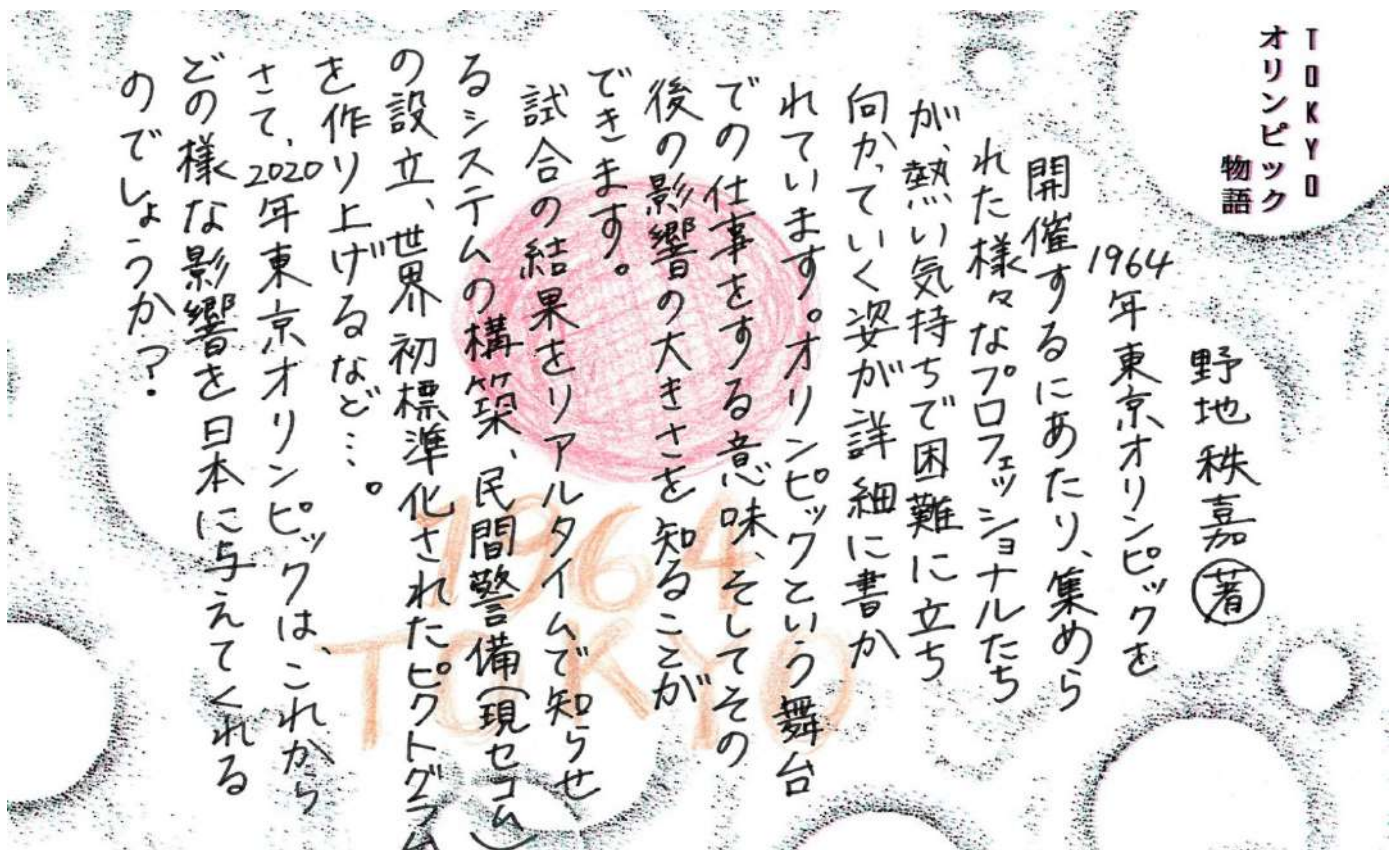 TOKYO
オリンピック
物語
野地秩嘉 著
1964年東京オリンピックを
開催するにあたり、集めら
れた様々なプロフェッショナルたち
が、熱い気持ちで困難に立ち
向かっていく姿が詳細に書か
れています。オリンピックという舞台
での仕事をする意味、そしてその
後の影響の大きさを知ることが
できます。
試合の結果をリアルタイムで知らせ
るシステムの構築、民間警備(現セコム)
の設立、世界初標準化されたピクトグラム
を作り上げるなど…。
さて、2020年東京オリンピックは、これから
どの様な影響を日本に与えてくれる
のでしょうか?
1964
TOKYO